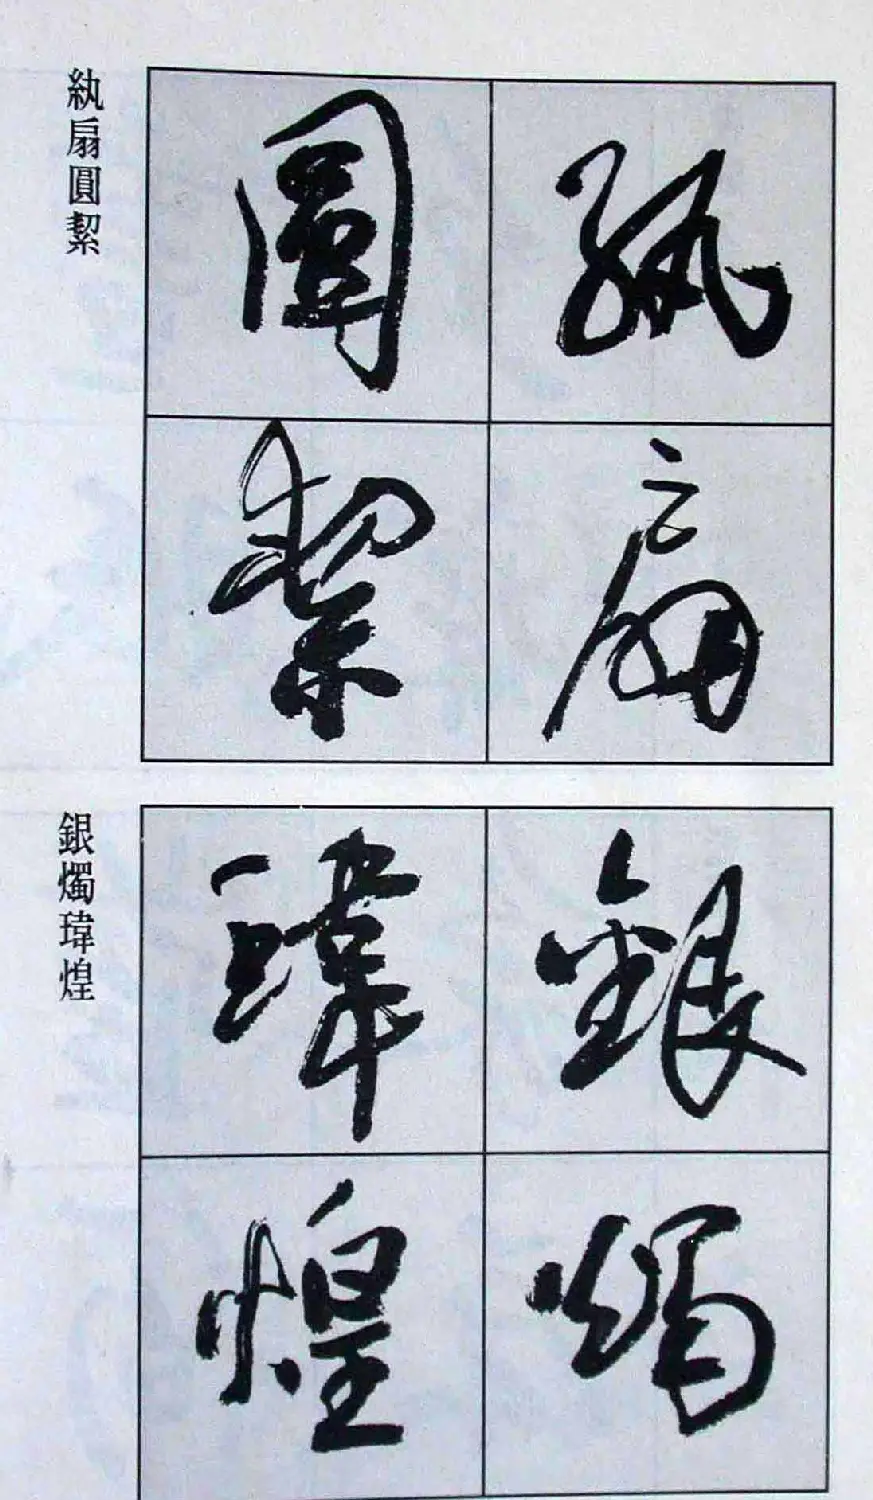 紈扇
圓絜
紈扇圓絜
銀燭
瑋煌
銀燭瑋煌